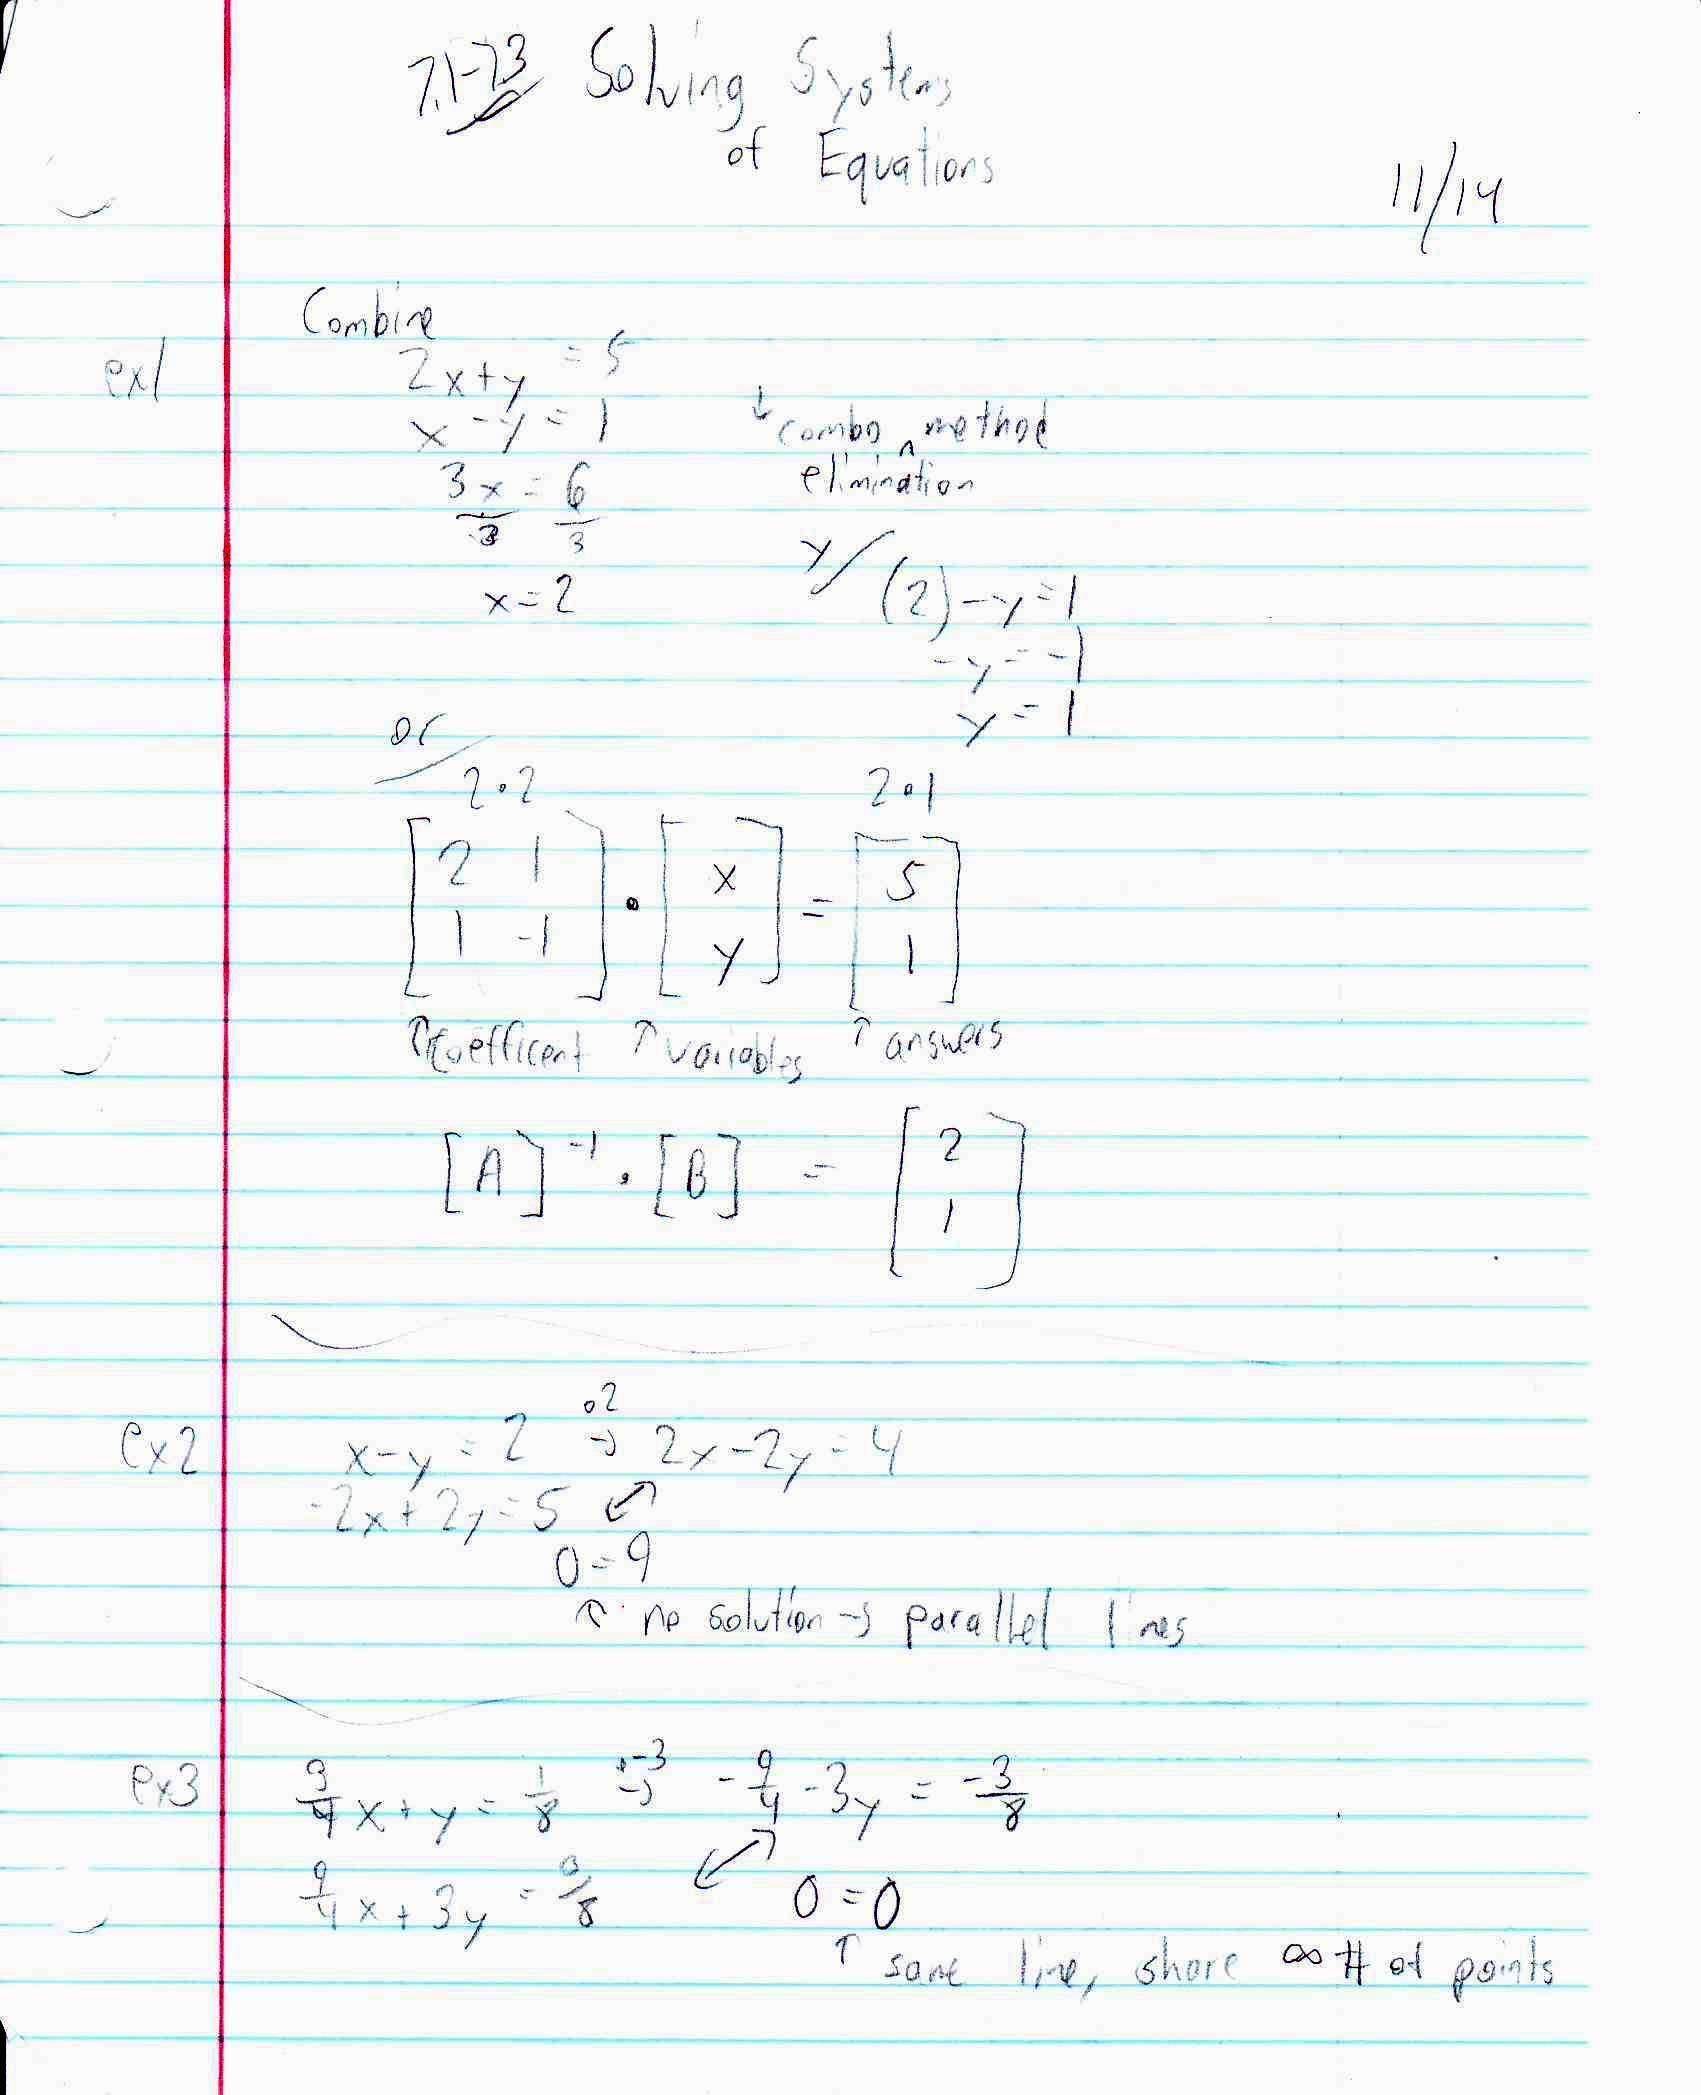 7.1-7.3 Solving Systems
of Equations
11/14
Combine
ex1 2x+y = 5
x - y = 1
↓ combo ^ method
elimination
3x = 6
3 3
x=2
y/ (2) - y = 1
- y = -1
y = 1
or
2•2 2•1
[2 1] • [x] = [5]
[1 -1] [y] [1]
↑ Coefficent ↑ variables ↑ answers
[A]⁻¹ • [B] = [2]
[1]
ex2 x-y = 2 •2 → 2x-2y=4
-2x+2y=5
0=9
↑ no solution → parallel lines
ex3 3/4 x+y = 1/8 •-3 → -9/4 -3y = -3/8
9/4 x+3y = 3/8
0=0
↑ same line, share ∞ # of points